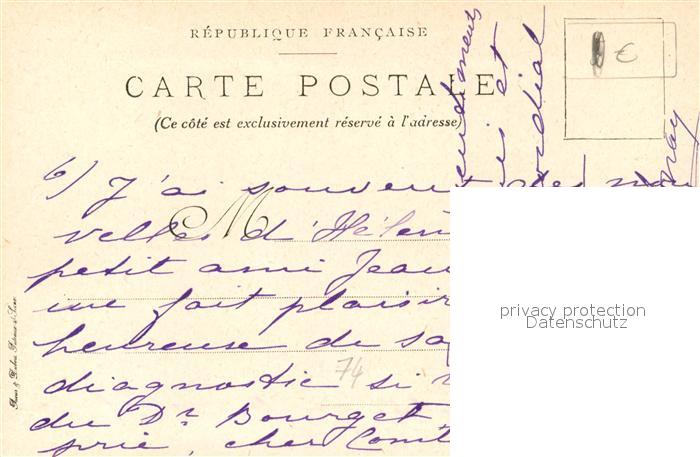 RÉPUBLIQUE FRANÇAISE
CARTE POSTALE
(Ce côté est exclusivement réservé à l'adresse)
€
6) J'ai souven
M
velles d'Hélèn
petit ami Jean
me fait plaisir
heureuse de sa
74
diagnostic si
du Dr Bourget
prie, cher Comt
et
cordial
privacy protection
Datenschutz